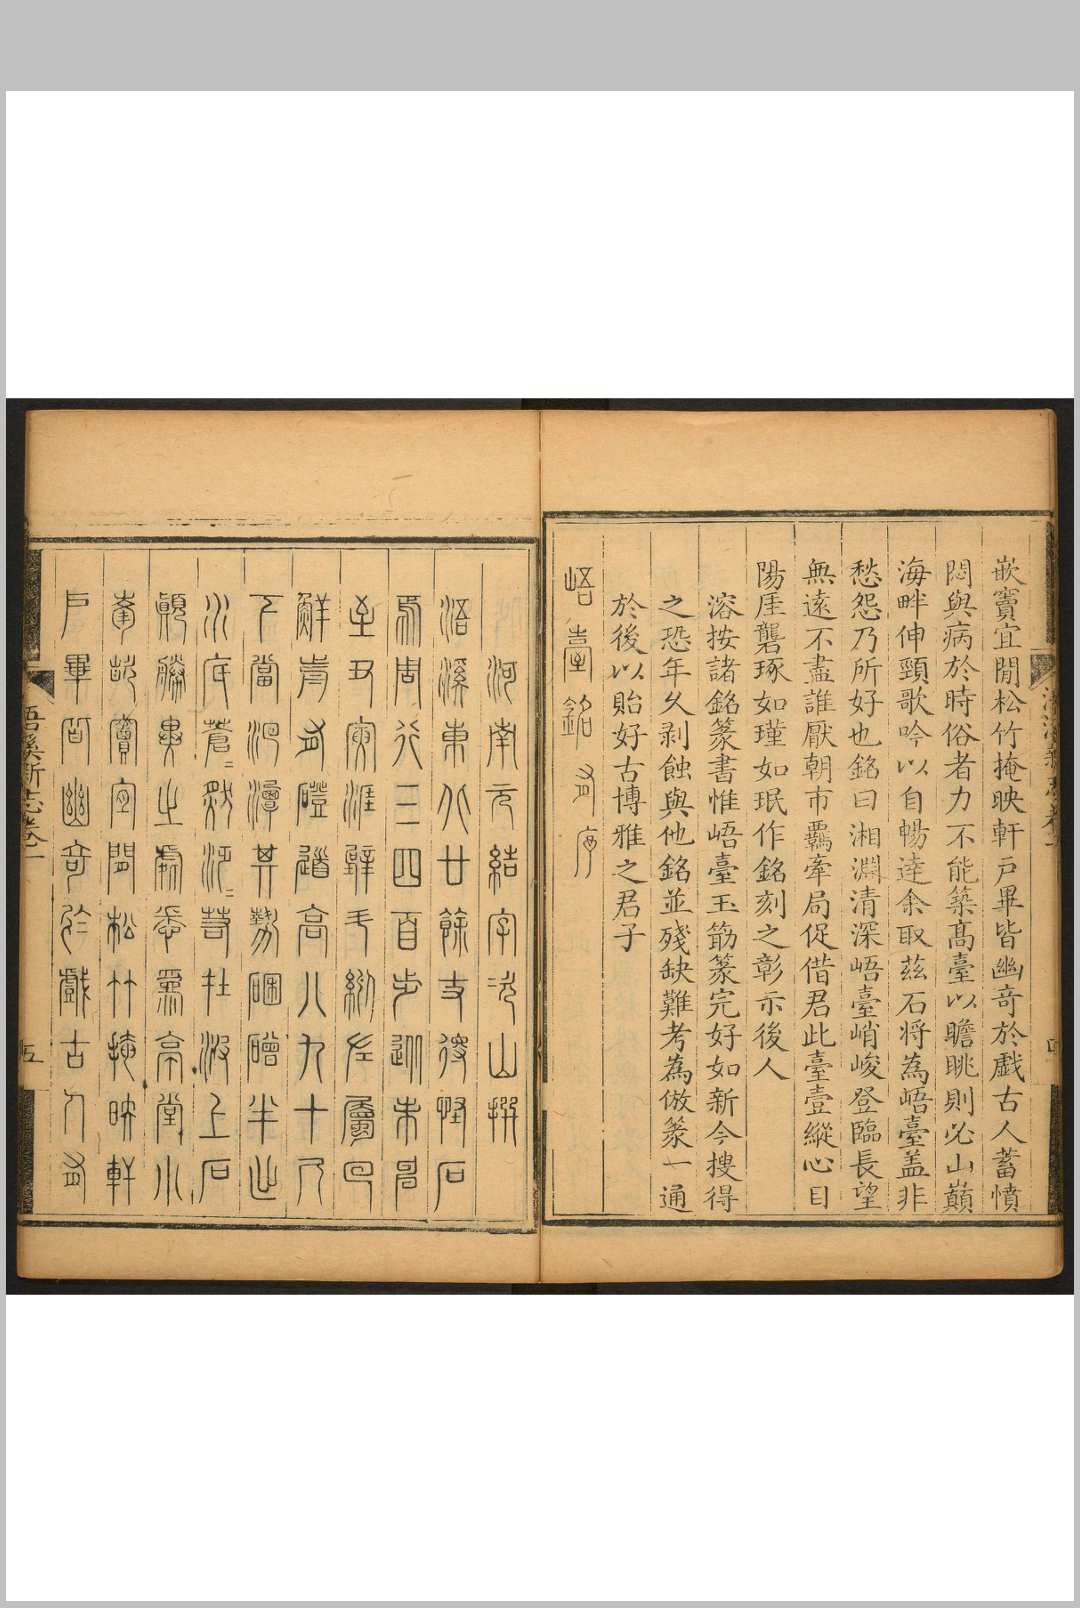 嵌竇宜閒松竹掩映軒戶畢皆幽奇於戲古人蓄憤
悶與病於時俗者力不能築高臺以瞻眺則必山巔
海畔伸頸歌吟以自暢達余取茲石將為峿臺盖非
愁怨乃所好也銘曰湘淵清深峿臺峭峻登臨長望
無遠不盡誰厭朝市羈牽局促借君此臺壹縱心目
陽厓礱琢如瑾如珉作銘刻之彰示後人
溶按諸銘篆書惟峿臺玉筯篆完好如新今搜得
之恐年久剥蝕與他銘並殘缺難考為倣篆一通
於後以貽好古博雅之君子
峿臺銘有序
河南元結字次山撰
浯溪東北廿餘丈得怪石
焉周行三四百步從未申
至丑寅涯壁斗絕左屬回
鮮前有磴道高八九十尺
下當洄潭其勢硱磳半出
水底蒼蒼然泛泛若在波上石
顛勝異之處悉為亭堂小
峯嵌竇宜閒松竹掩映軒
戶畢皆幽奇於戲古人有
浯溪新志卷一
五
四